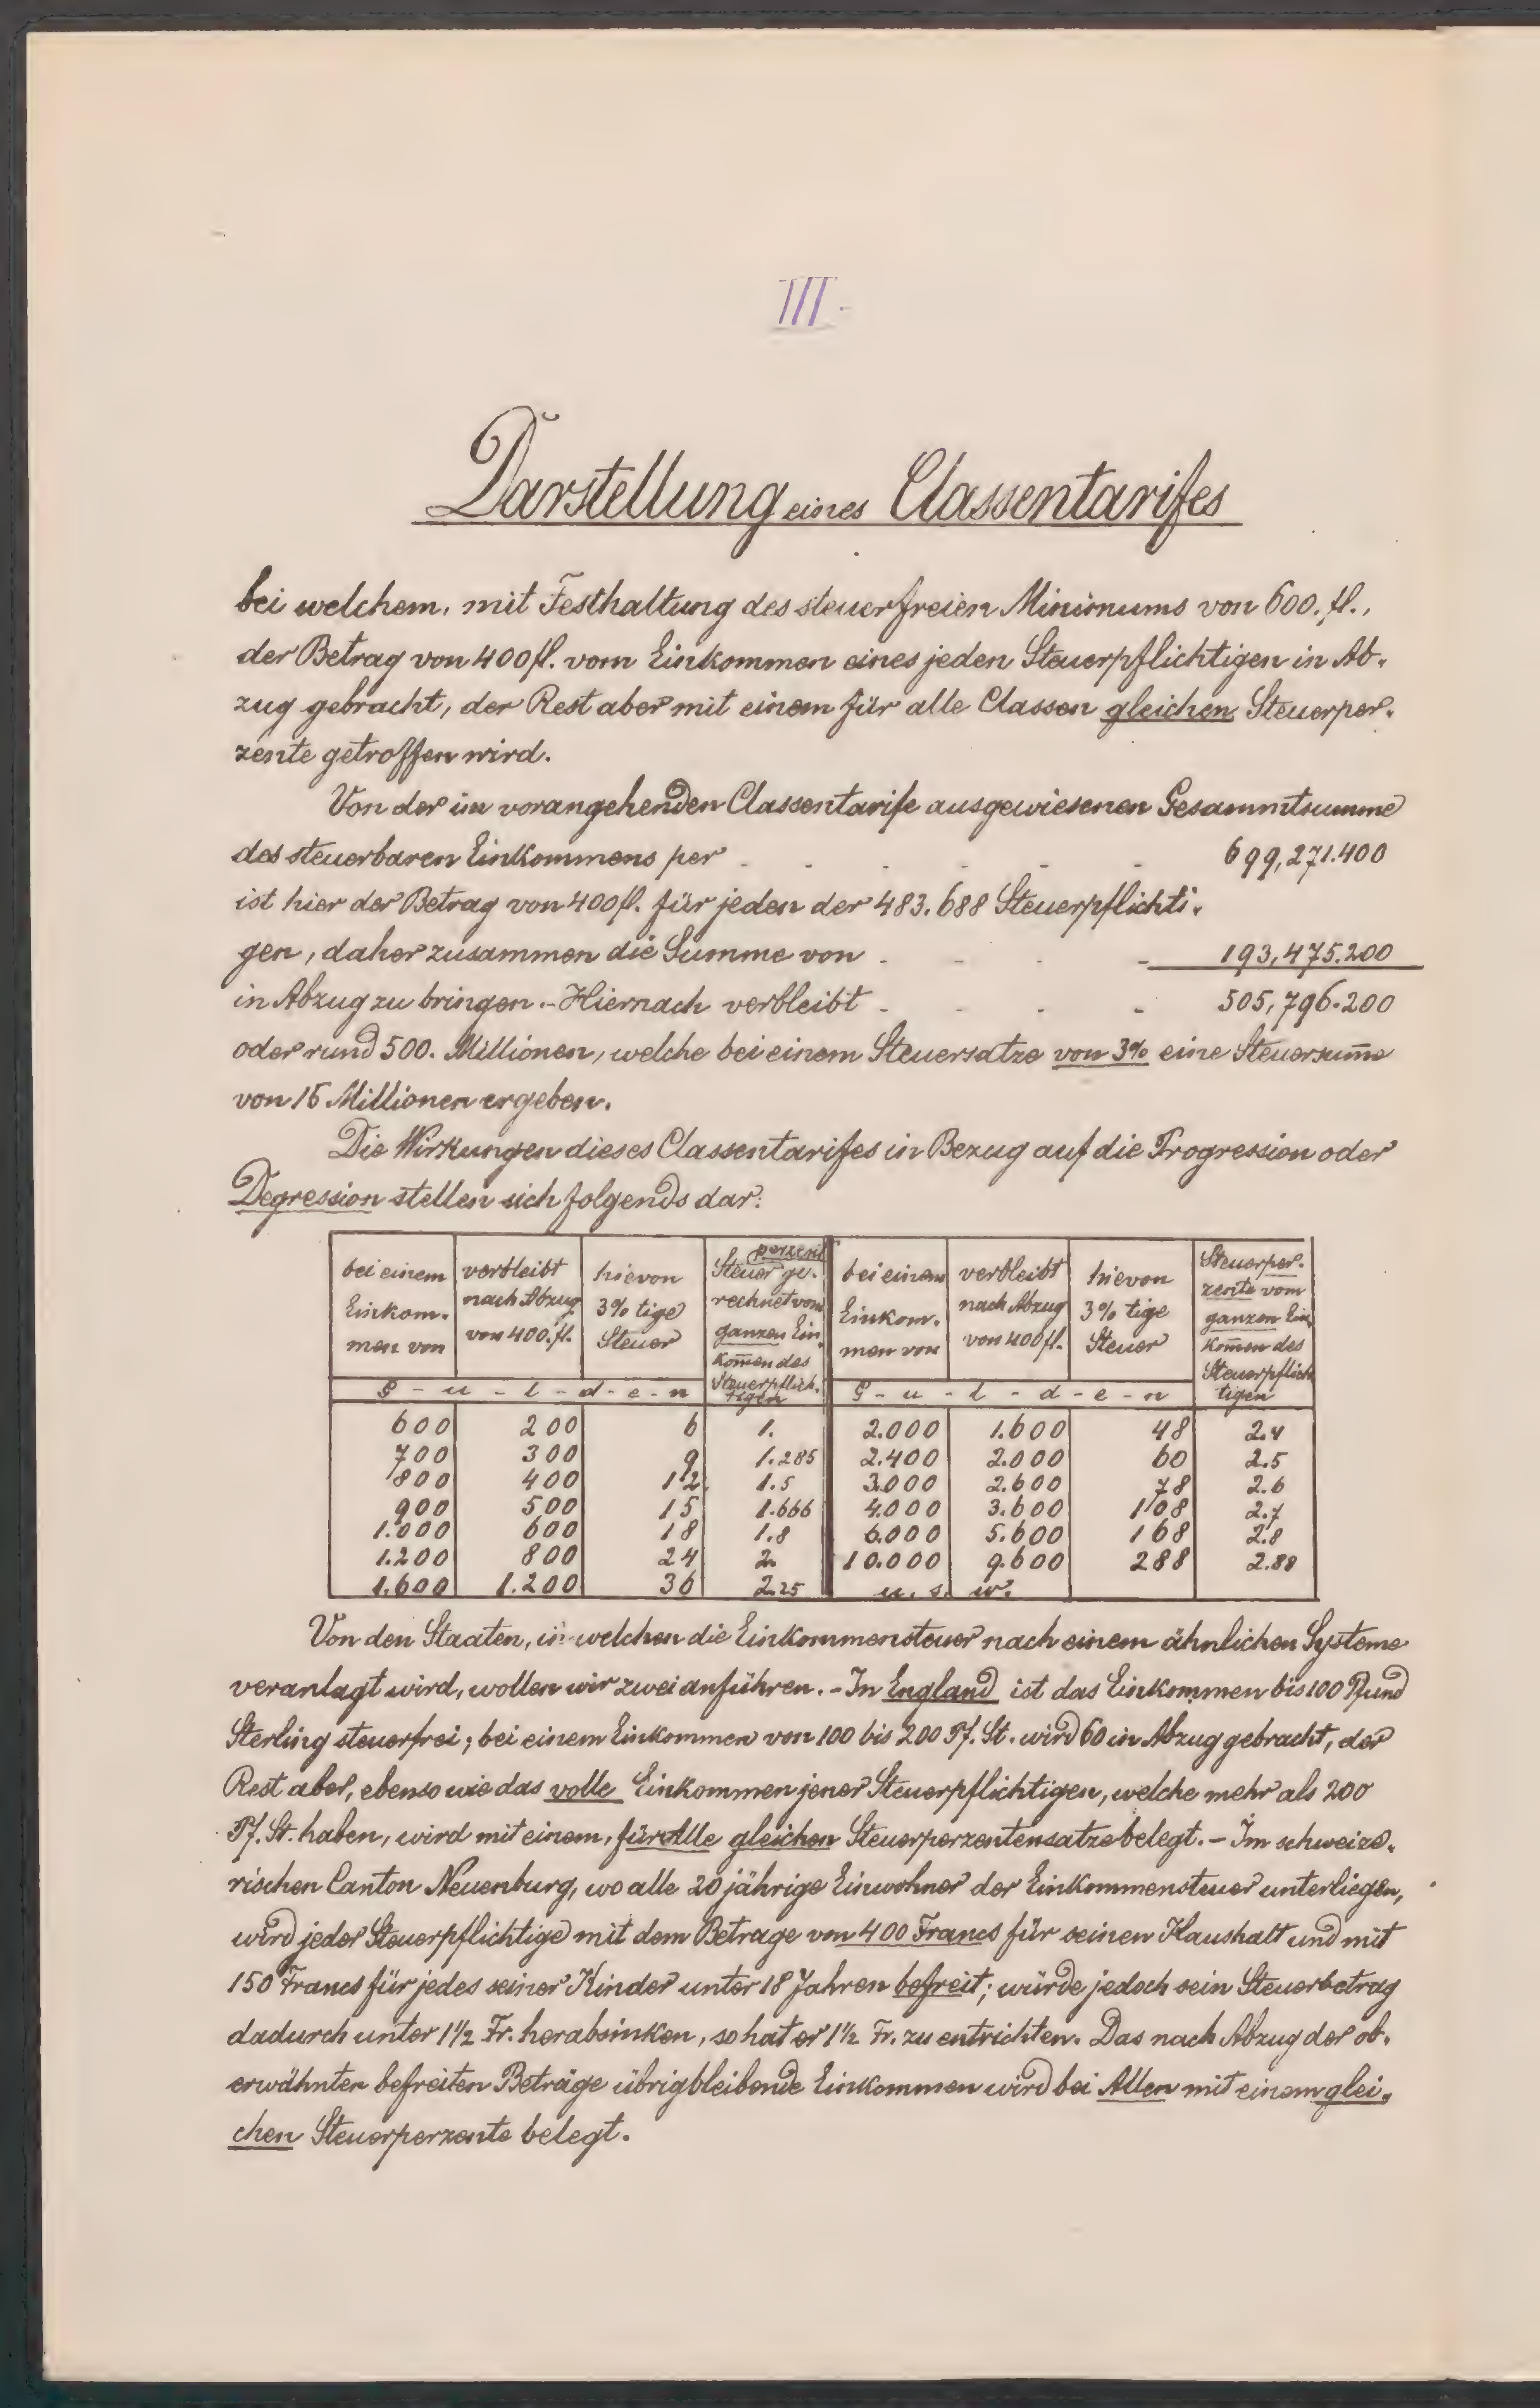 III.
Darstellung eines Classentarifes
bei welchem, mit Festhaltung des steuerfreien Minimums von 600. fl.,
der Betrag von 400 fl. vom Einkommen eines jeden Steuerpflichtigen in Ab-
zug gebracht, der Rest aber mit einem für alle Classen gleichen Steuerper-
zente getroffen wird.
Von der im vorangehenden Classentarife ausgewiesenen Gesammtsumme
des steuerbaren Einkommens per - - - - - 699,271.400
ist hier der Betrag von 400 fl. für jeden der 483.688 Steuerpflichti-
gen, daher zusammen die Summe von - - - - 193,475.200
in Abzug zu bringen. - Hiernach verbleibt - - - - 505,796.200
oder rund 500. Millionen, welche bei einem Steuersatze von 3% eine Steuersum̄e
von 15 Millionen ergeben.
Die Wirkungen dieses Classentarifes in Bezug auf die Progression oder
Degression stellen sich folgends dar:
bei einem Einkom- men von | verbleibt nach Abzug von 400. fl. | hievon 3% tige Steuer | Steuerperzent ge- rechnet vom ganzen Ein- kom̄en des Steuerpflich- tigen | bei einem Einkom- men von | verbleibt nach Abzug von 400 fl. | hievon 3% tige Steuer | Steuerper- zente vom ganzen Ein- kom̄en des Steuerpflich- tigen
G - u - l - d - e - n | G - u - l - d - e - n
600 200 6 1. 2.000 1.600 48 2.4
700 300 9 1.285 2.400 2.000 60 2.5
800 400 12 1.5 3.000 2.600 78 2.6
900 500 15 1.666 4.000 3.600 108 2.7
1.000 600 18 1.8 6.000 5.600 168 2.8
1.200 800 24 2. 10.000 9.600 288 2.88
1.600 1.200 36 2.25 u. s. w.
Von den Staaten, in welchen die Einkommensteuer nach einem ähnlichen Systeme
veranlagt wird, wollen wir zwei anführen. - In England ist das Einkommen bis 100 Pfund
Sterling steuerfrei; bei einem Einkommen von 100 bis 200 Pf. St. wird 60 in Abzug gebracht, der
Rest aber, ebenso wie das volle Einkommen jener Steuerpflichtigen, welche mehr als 200
Pf. St. haben, wird mit einem, für Alle gleichen Steuerperzentensatze belegt. - Im schweize-
rischen Canton Neuenburg, wo alle 20 jährige Einwohner der Einkommensteuer unterliegen,
wird jeder Steuerpflichtige mit dem Betrage von 400 Francs für seinen Haushalt und mit
150 Francs für jedes seiner Kinder unter 18 Jahren befreit; würde jedoch sein Steuerbetrag
dadurch unter 1½ Fr. herabsinken, so hat er 1½ Fr. zu entrichten. Das nach Abzug der ob-
erwähnten befreiten Beträge übrigbleibende Einkommen wird bei Allen mit einem glei-
chen Steuerperzente belegt.